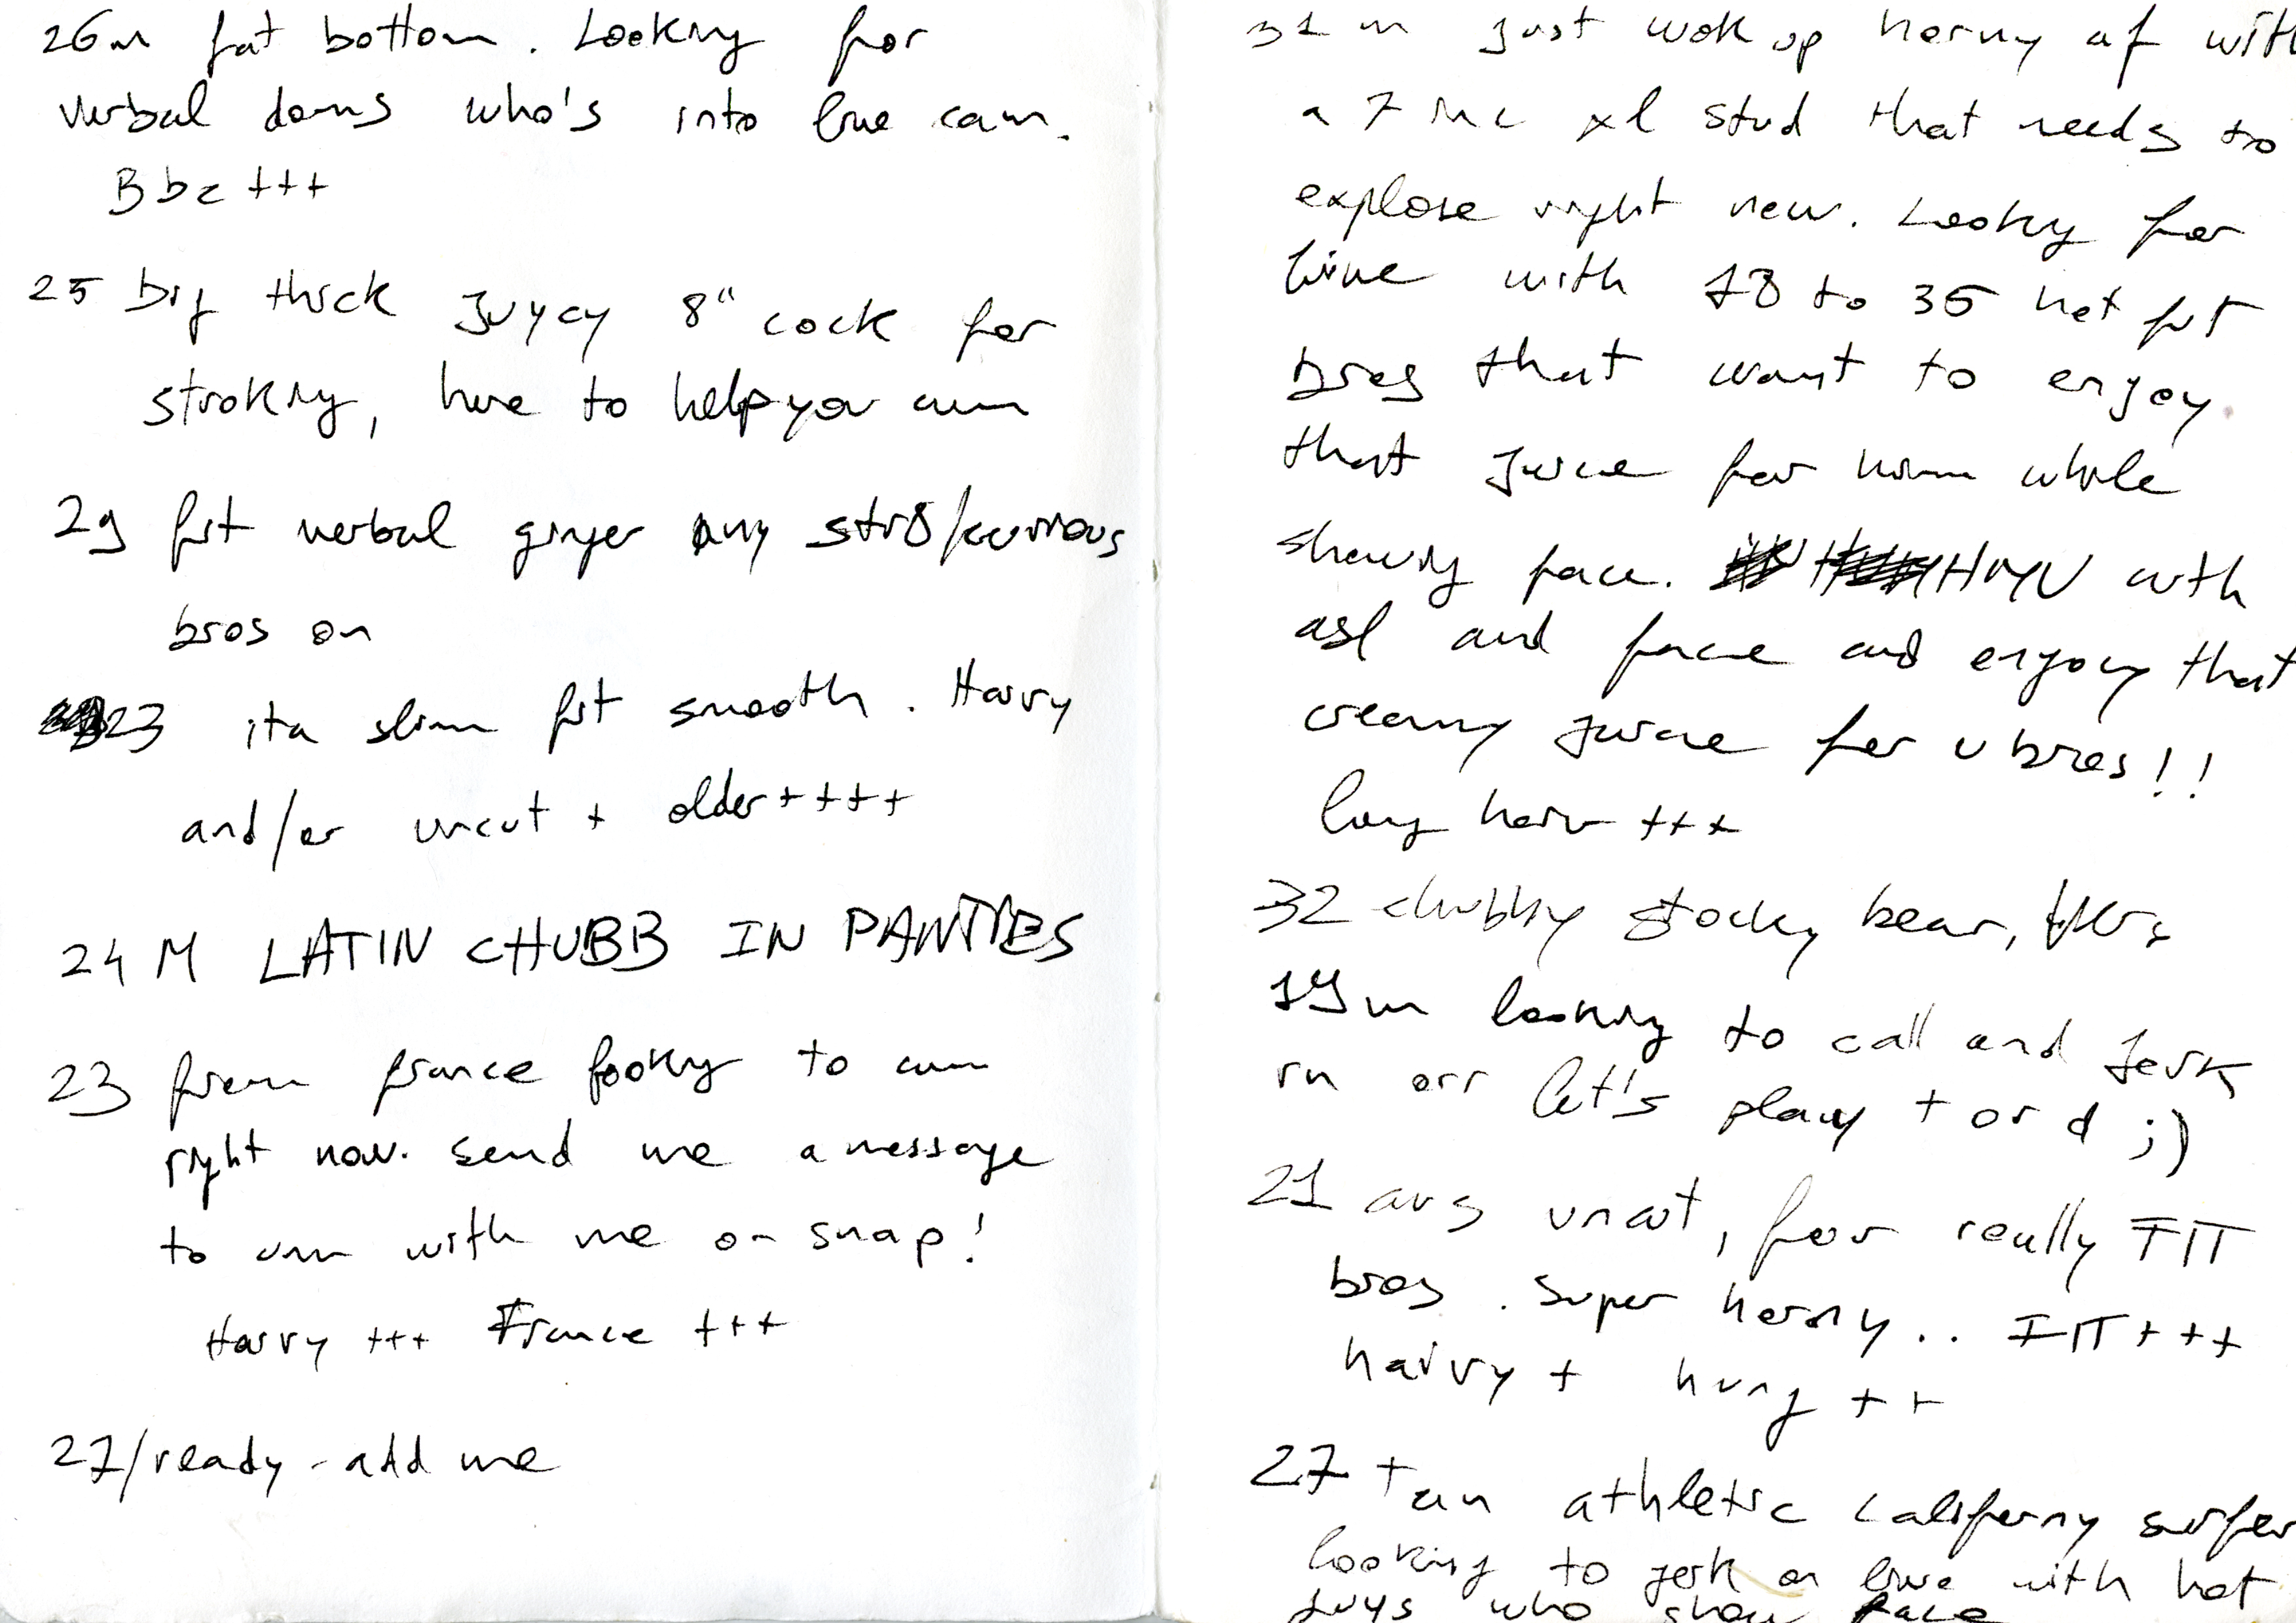 26m fat bottom. Looking for
verbal doms who's into live cam.
Bbc +++
25 big thick juycy 8" cock for
stroking, here to help you cum
29 fit verbal ginger any str8/curious
bros on
23 ita slim fit smooth. Hairy
and/or uncut + older ++++
24 M LATIN CHUBB IN PANTIES
23 from france looking to cum
right now. send me a message
to cum with me on snap!
Hairy +++ France +++
27/ready - add me
31 m just wok up horny af with
a 7 xl stud that needs to
explose right now. Looking for
live with 18 to 35 hot fit
bros that want to enjoy
that juice for him while
showing face. HMU with
asl and face and enjoy that
creamy juice for u bros!!
long hair +++
32 chubby stocky bear,
19m looking to call and jerk
rn orr let's play t or d ;)
21 avg uncut, for really FIT
bros. super horny.. FIT+++
hairy + hung ++
27 tan athletic californy surfer
looking to jerk on live with hot
guys who show face